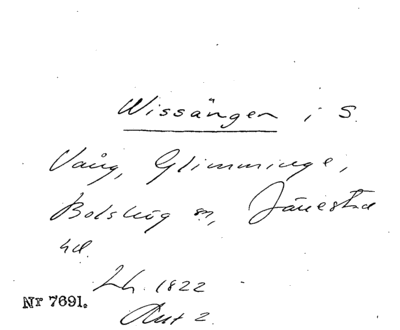 Wissängen i S.
Vång, Glimminge,
Bolshög sn, Järrestad
hd.
Lh. 1822
Nr 7691.
Rut 2